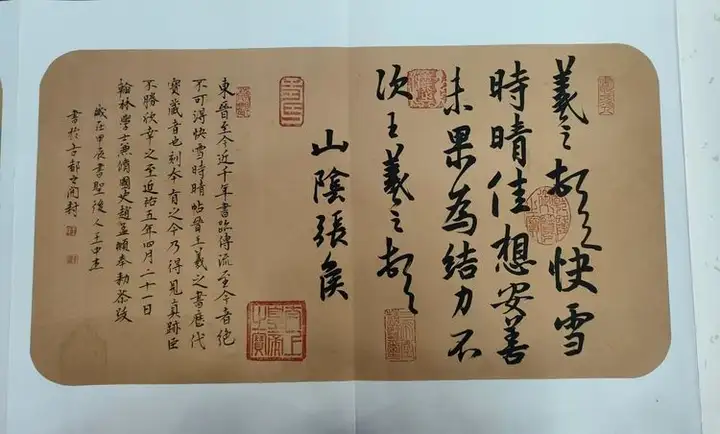 羲之頓首快雪
時晴佳想安善
未果為結力不
次王羲之頓首
山陰張侯
東晉至今近千年書跡傳流至今者絕
不可得快雪時晴帖晉王羲之書歷代
寶藏者也刻本有之今乃得見真跡臣
不勝欣幸之至延祐五年四月二十一日
翰林學士兼脩國史趙孟頫奉勅恭跋
歲在甲辰書聖後人王中杰
書於古都之開封